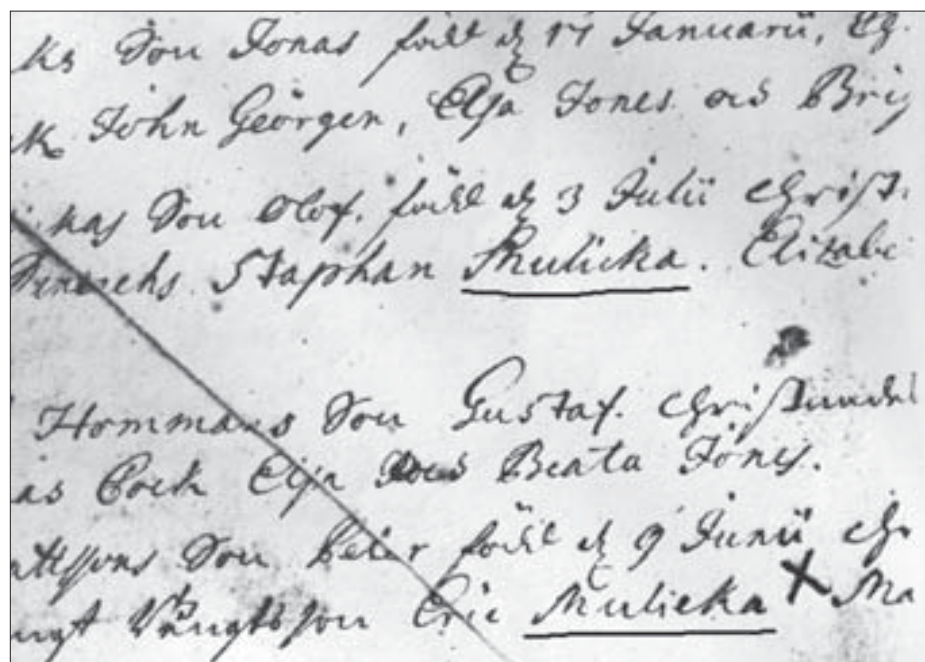 ks Son Jonas född d 17 Januarii,
John Georgen, Elsa Jones och Brig
kas Son Olof. född d 3 Julii Christ.
Hinrichs Staphan Mulicka. Elizabe
Hommans Son Gustaf. Christnades
as Cock Elsa Beata Jones.
attssons Son Peter född d 9 Junii Chr
ngt Bängtsson Eric Mulicka X Ma